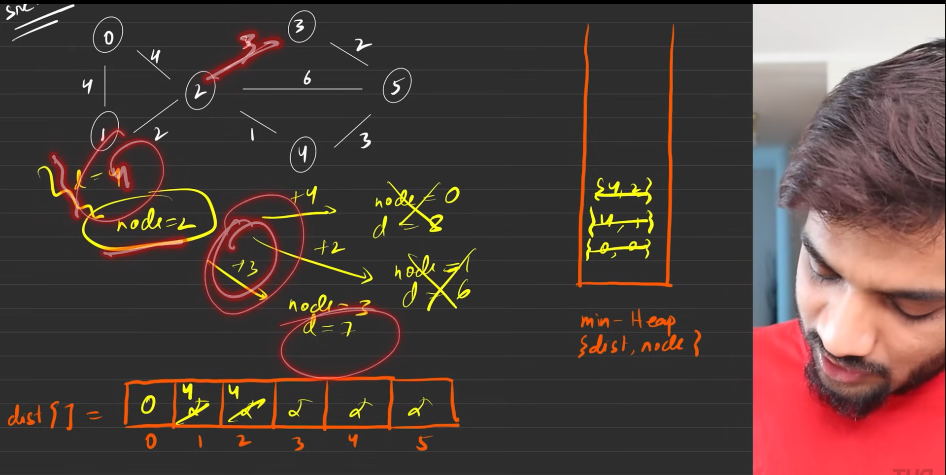 src
0
3
3
4
2
4
2
6
5
1
2
1
4
3
d = 4
node=2
+4
node = 0
d = 8
+2
node = 1
d = 6
+3
node = 3
d = 7
{4, 2}
{4, 1}
{0, 0}
min-Heap
{dist, node}
4 4
dist[] = 0 ∞ ∞ ∞ ∞ ∞
0 1 2 3 4 5